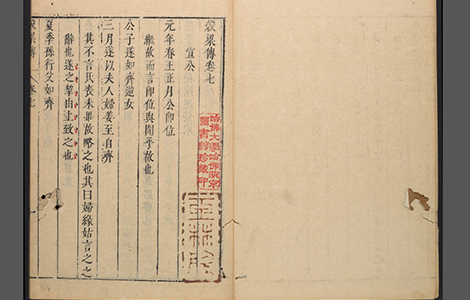 哈佛大學哈佛燕京
圖書館珍藏印
穀梁傳卷七
宣公
元年春王正月公即位
繼故而言即位與聞乎故也
公子遂如齊逆女
三月遂以夫人婦姜至自齊
其不言氏喪未畢故略之也其曰婦緣姑言之之
辭也遂之挈由上致之也
夏季孫行父如齊
穀梁傳 卷七